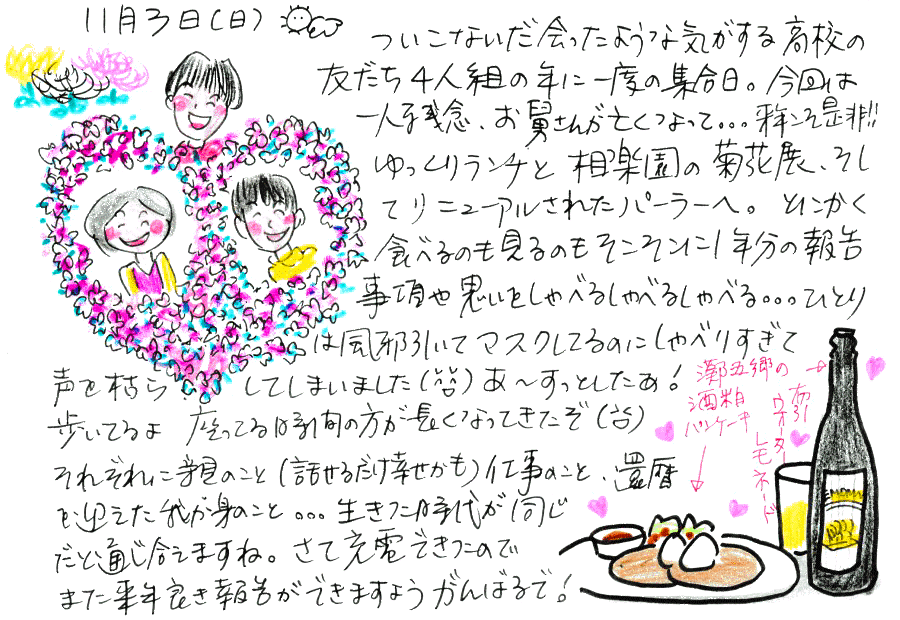 11月3日(日)
ついこないだ会ったような気がする高校の
友だち4人組の年に一度の集合日。今回は
一人残念、お舅さんが亡くなって...来年こそ是非!!
ゆっくりランチと相楽園の菊花展、そし
てリニューアルされたパーラーへ。とにかく
食べるのも見るのもそこそこに1年分の報告
事項や思いをしゃべるしゃべるしゃべる...ひとり
は風邪引いてマスクしてるのにしゃべりすぎて
声を枯ら してしまいました(笑)あ〜すっとしたぁ!
歩いてるよ 座ってる時間の方が長くなってきたぞ(笑)
それぞれに親のこと(話せるだけ幸せかも)仕事のこと、還暦
を迎えた我が身のこと...生きた時代が同じ
だと通じ合えますね。さて充電できたので
また来年良き報告ができますようがんばるで!
灘五郷の
酒粕
パンケーキ
布引
ウォーター
レモネード